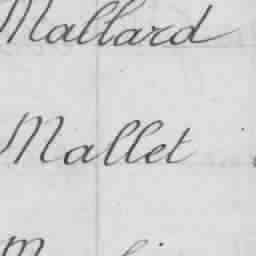 Mallard
Mallet